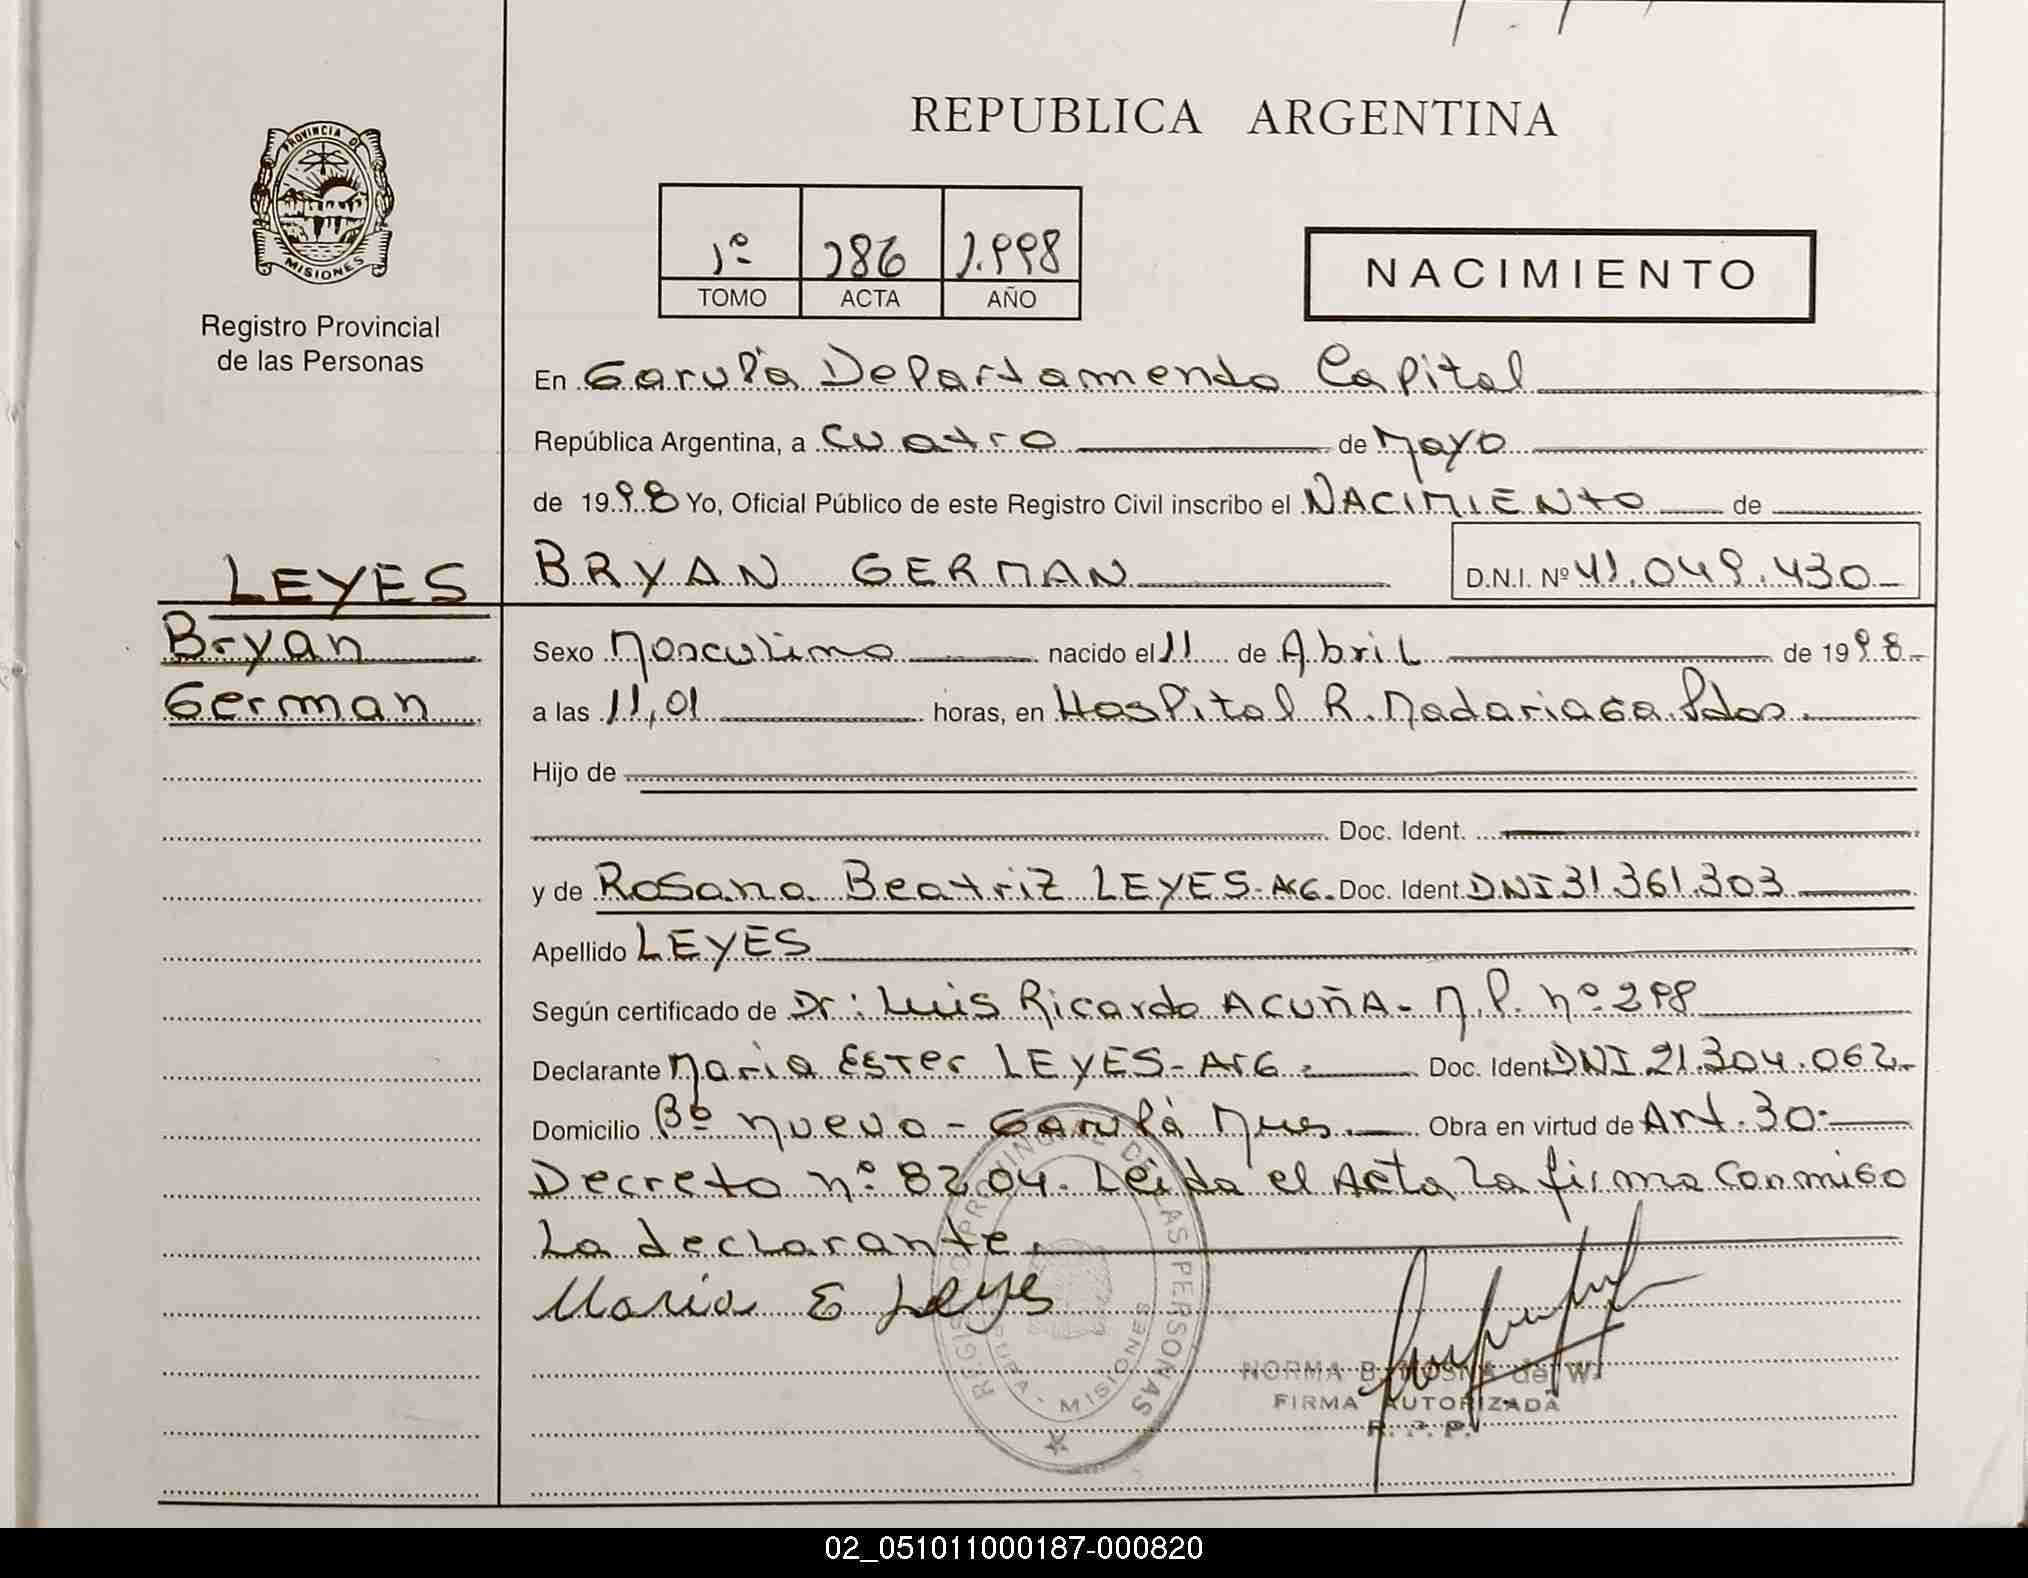 REPUBLICA ARGENTINA
PROVINCIA DE
MISIONES
Registro Provincial
de las Personas
1º 286 1.998
TOMO ACTA AÑO
NACIMIENTO
En Garupá Departamento Capital
República Argentina, a cuatro de Mayo
de 1998 Yo, Oficial Público de este Registro Civil inscribo el NACIMIENTO de
BRYAN GERMAN D.N.I. Nº 41.049.430
LEYES
Bryan
German
Sexo Masculino nacido el 11 de Abril de 1998
a las 11,01 horas, en Hospital R. Madariaga Pdas.
Hijo de
Doc. Ident.
y de Rosana Beatriz LEYES-Arg. Doc. Ident DNI 31.361.303
Apellido LEYES
Según certificado de Dr: Luis Ricardo ACUÑA- M.P. nº 298
Declarante Maria Ester LEYES-Arg. Doc. Ident DNI 21.304.062.-
Domicilio Bº nuevo - Garupá Mnes. Obra en virtud de Art. 30-
Decreto nº 8204. Leida el Acta la firma conmigo
La declarante.
Maria E Leyes
REGISTRO PROVINCIAL DE LAS PERSONAS
MISIONES
NORMA B. de W.
FIRMA AUTORIZADA
R. P. P.
02_051011000187-000820